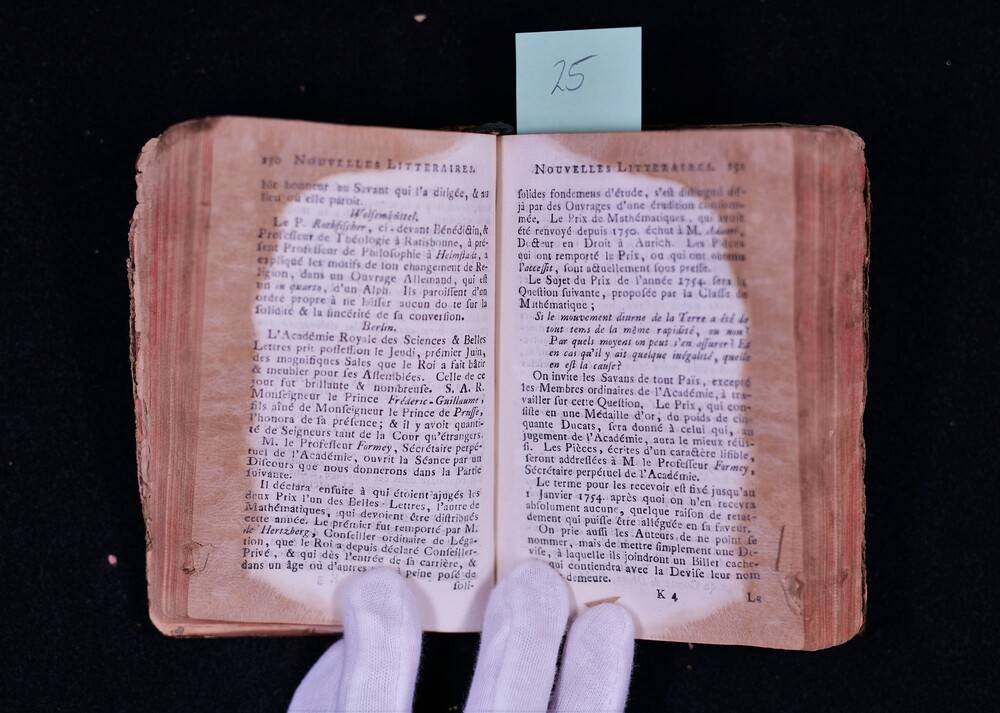 25
150 NOUVELLES LITTERAIRES.
honneur au Savant qui l'a dirigée, & au
lieu où elle paroit.
Wolfembüttel.
Le P. Rothfischer, ci-devant Bénédictin, &
Professeur de Théologie à Ratisbonne, à pré-
sent Professeur de Philosophie à Helmstadt, a
expliqué les motifs de son changement de Re-
ligion, dans un Ouvrage Allemand, qui est
un in quarto, d'un Alph. Ils paroissent d'en
ordre propre à ne laisser aucun doute sur la
solidité & la sincérité de sa conversion.
Berlin.
L'Académie Royale des Sciences & Belles
Lettres prit possession le Jeudi, prémier Juin,
des magnifiques Sales que le Roi a fait bâtir
& meubler pour ses Assemblées. Celle de ce
jour fut brillante & nombreuse. S. A. R.
Monseigneur le Prince Fréderic-Guillaume,
fils aîné de Monseigneur le Prince de Prusse,
l'honora de sa présence; & il y avoit quanti-
té de Seigneurs tant de la Cour qu'étrangers.
M. le Professeur Formey, Sécrétaire perpé-
tuel de l'Académie, ouvrit la Séance par un
Discours que nous donnerons dans la Partie
suivante.
Il déclara ensuite à qui étoient ajugés les
deux Prix l'un des Belles-Lettres, l'autre de
Mathématiques, qui devoient être distribués
cette année. Le prémier fut remporté par M.
de Hertzberg, Conseiller ordinaire de Léga-
tion, que le Roi a depuis déclaré Conseiller-
Privé, & qui dès l'entrée de sa carrière, &
dans un âge où d'autres à peine posé de
soli-
NOUVELLES LITTERAIRES. 151
solides fondemens d'étude, s'est distingué dé-
jà par des Ouvrages d'une érudition consom-
mée. Le Prix de Mathématiques, qui avoit
été renvoyé depuis 1750. échut à M. Adami,
Docteur en Droit à Aurich. Les Pièces
qui ont remporté le Prix, ou qui ont obtenu
l'accessit, sont actuellement sous presse.
Le Sujet du Prix de l'année 1754. sera la
Question suivante, proposée par la Classe de
Mathématique;
Si le mouvement diurne de la Terre a été de
tout tems de la même rapidité, ou non?
Par quels moyens on peut s'en assurer? Et
en cas qu'il y ait quelque inégalité, quelle
en est la cause?
On invite les Savans de tout Païs, excepté
les Membres ordinaires de l'Académie, à tra-
vailler sur cette Question. Le Prix, qui con-
siste en une Médaille d'or, du poids de cin-
quante Ducats, sera donné à celui qui, au
jugement de l'Académie, aura le mieux réüs-
si. Les Pièces, écrites d'un caractère lisible,
seront addressées à M. le Professeur Formey,
Sécrétaire perpétuel de l'Académie.
Le terme pour les recevoir est fixé jusqu'au
1 Janvier 1754. après quoi on n'en recevra
absolument aucune, quelque raison de retar-
dement qui puisse être alléguée en sa faveur.
On prie aussi les Auteurs de ne point se
nommer, mais de mettre simplement une De-
vise, à laquelle ils joindront un Billet cache-
qui contiendra avec la Devise leur nom
demeure.
K 4 Le